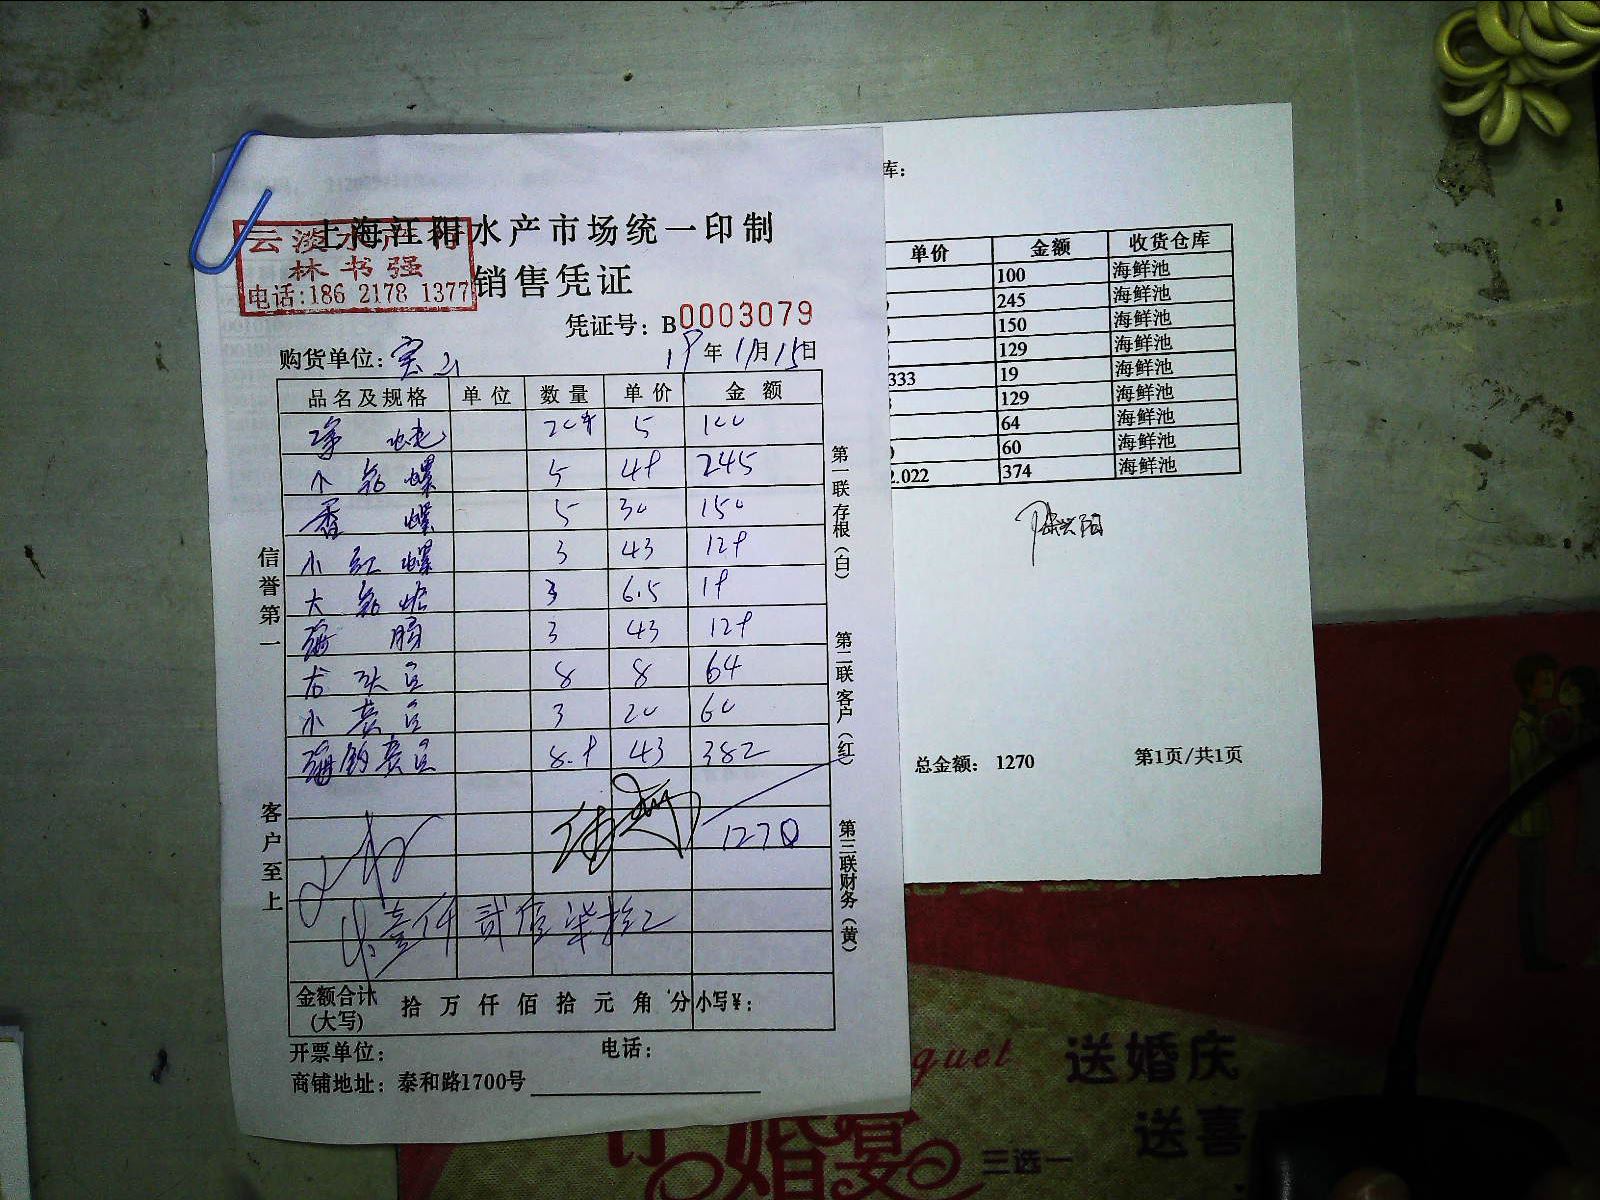 上海江阳水产市场统一印制
云淡水产行
林书强
电话:186 2178 1377
销售凭证
凭证号：B0003079
购货单位：宝山 19年11月15日
品名及规格 单位 数量 单价 金额
净 蛏 20斤 5 100
小 花 螺 5 49 245
香 螺 5 30 150
小 红 螺 3 43 129
大 花 蛤 3 6.5 19
海 肠 3 43 129
8 8 64
3 20 60
8.9 43 382
1270
壹仟贰佰柒拾元
金额合计(大写) 拾 万 仟 佰 拾 元 角 分 小写¥：
开票单位： 电话：
商铺地址：泰和路1700号
信誉第一
客户至上
第一联存根(白)
第二联客户(红)
第三联财务(黄)
库：
单价 金额 收货仓库
100 海鲜池
245 海鲜池
150 海鲜池
129 海鲜池
333 19 海鲜池
129 海鲜池
64 海鲜池
60 海鲜池
2.022 374 海鲜池
总金额： 1270 第1页/共1页
quet
送婚庆
送喜
订婚宴
三选一